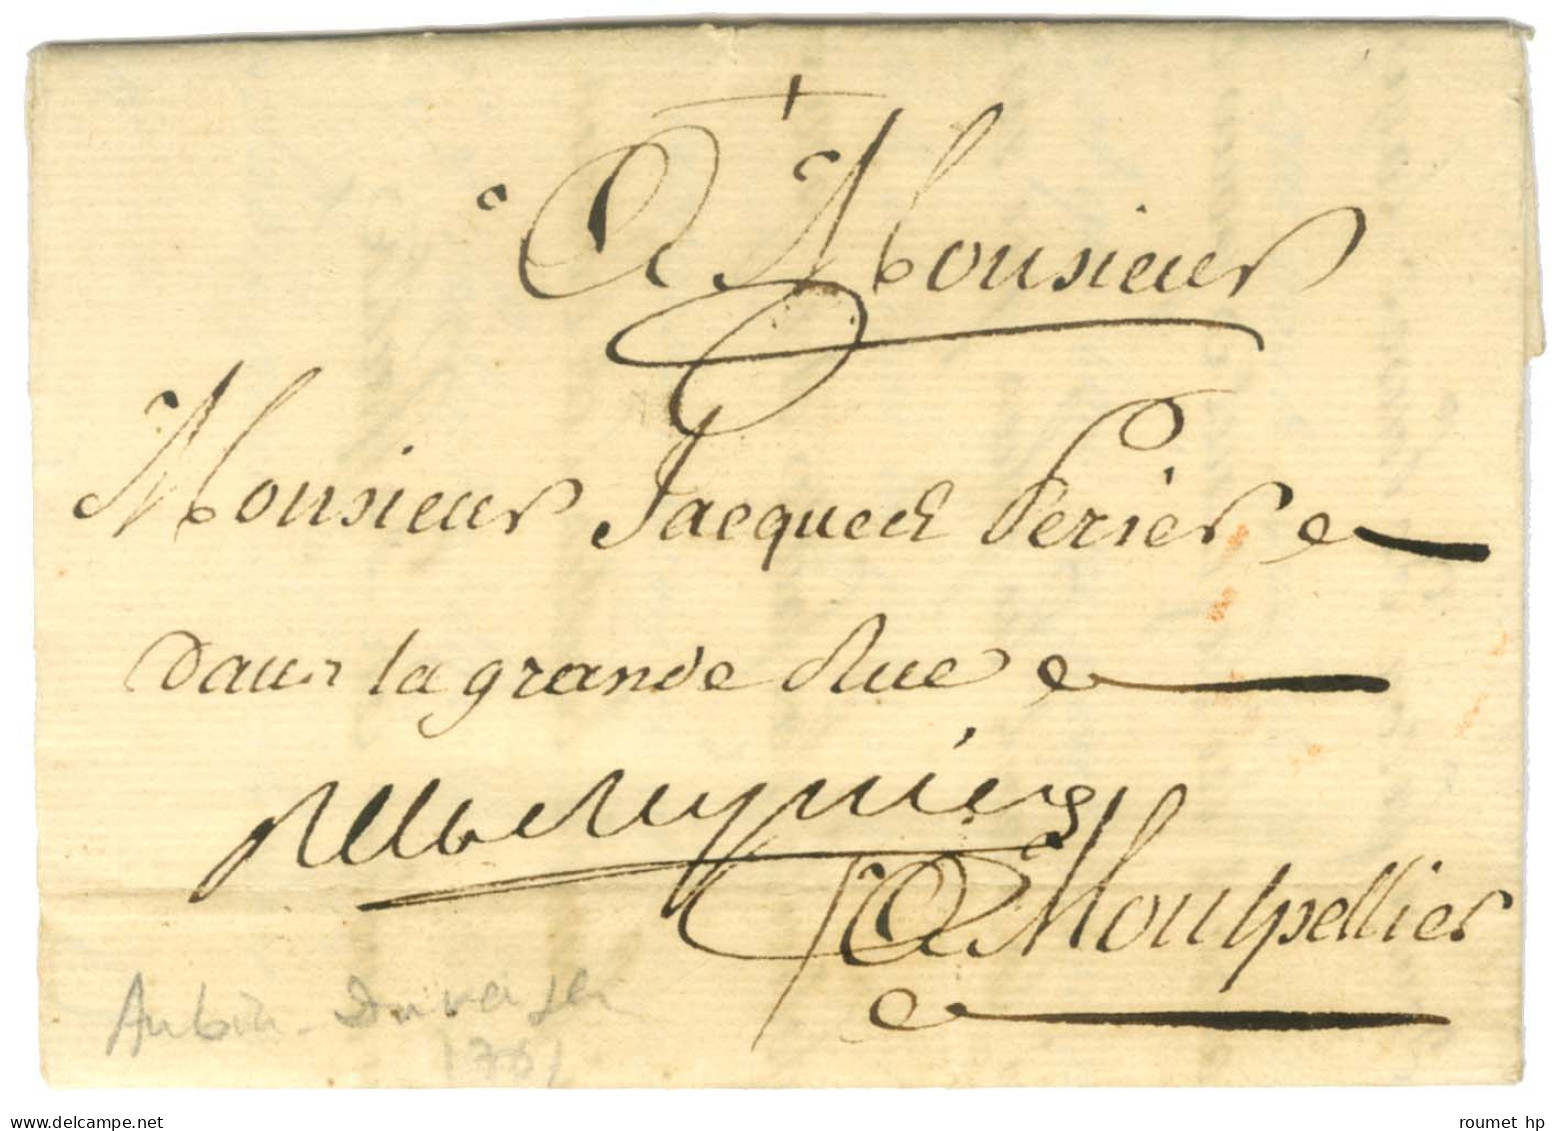 A Monsieur
Monsieur Jacques Perier
dans la grande Rue
A Montpellier
1701
www.delcampe.net
roumet hp